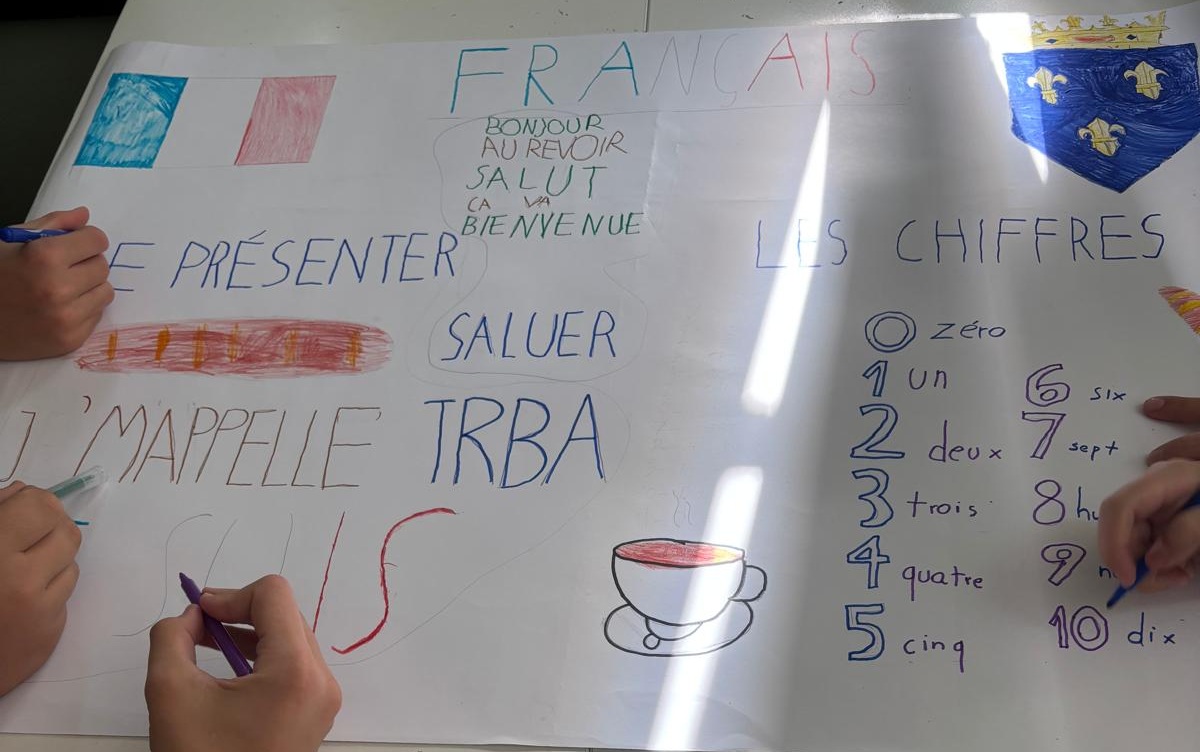 FRANÇAIS
BONJOUR
AU REVOIR
SALUT
CA VA
BIENVENUE
E PRÉSENTER
SALUER
J'MAPPELLE TRBA
SUIS
LES CHIFFRES
0 zéro
1 un
2 deux
3 trois
4 quatre
5 cinq
6 six
7 sept
8 hu
9 n
10 dix